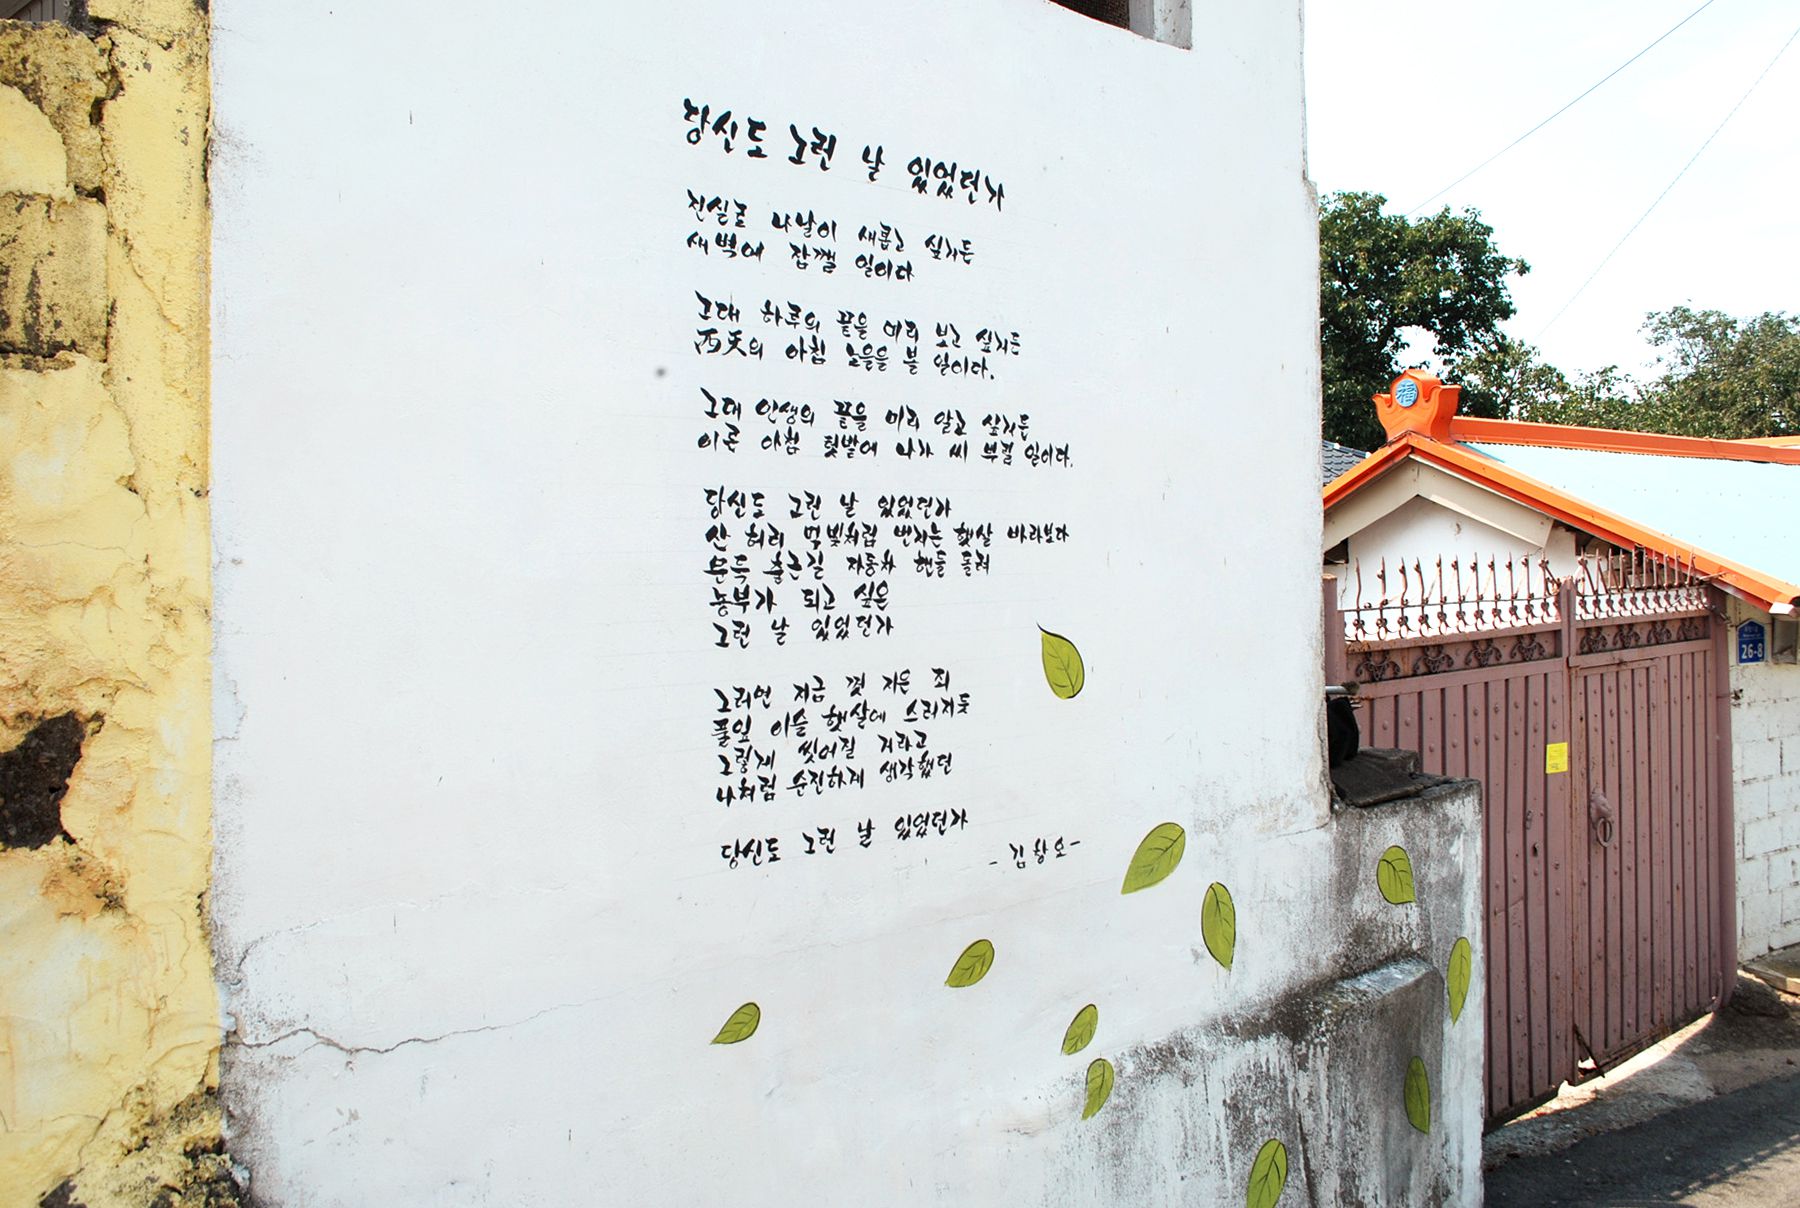 당신도 그런 날 있었던가
진실로 나날이 새롭고 싶거든
새벽에 잠깰 일이다
그대 하루의 끝을 미리 보고 싶거든
西天의 아침 노을을 볼 일이다.
그대 인생의 끝을 미리 알고 싶거든
이른 아침 텃밭에 나가 씨 뿌릴 일이다.
당신도 그런 날 있었던가
산 허리 먹빛처럼 번지는 햇살 바라보다
문득 출근길 자동차 핸들 돌려
농부가 되고 싶은
그런 날 있었던가
그러면 지금 껏 지은 죄
풀잎 이슬 햇살에 스러지듯
그렇게 씻어질 거라고
나처럼 순진하게 생각했던
당신도 그런 날 있었던가
- 김황오 -
福
26-8